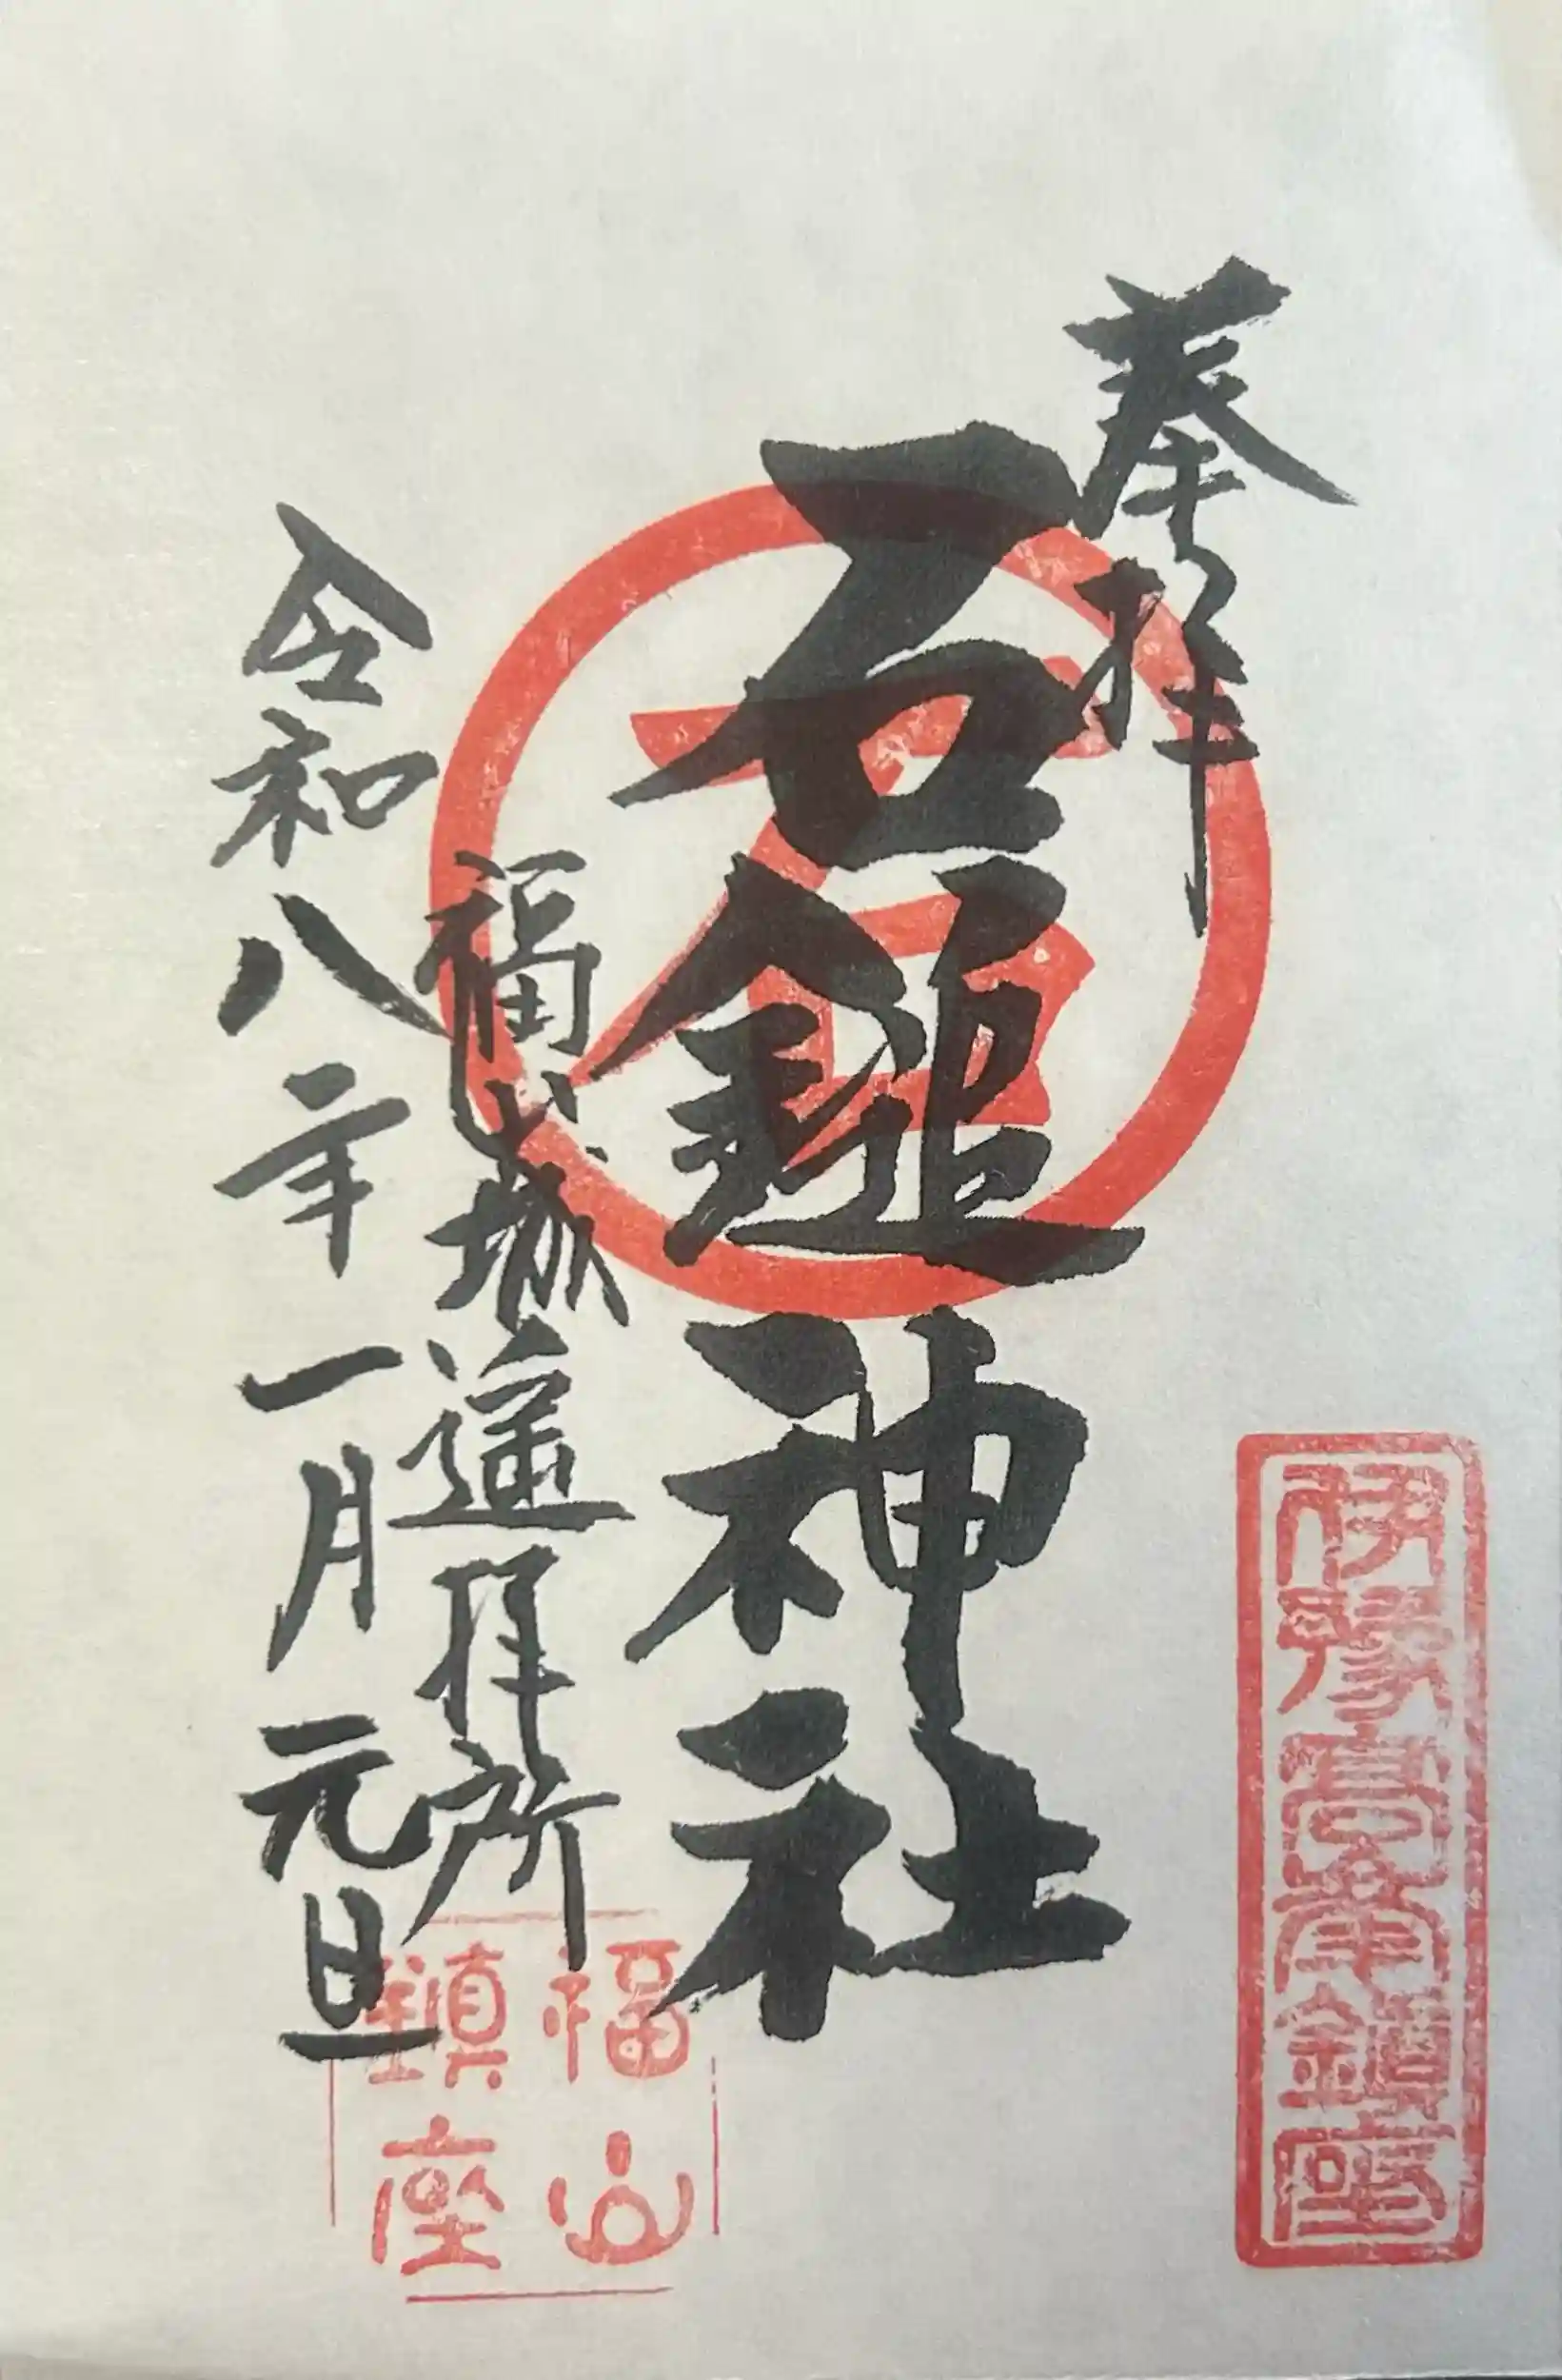 奉拝
石鎚神社
福城遥拝所
令和八年一月元旦
石
伊豫高峯鎮座
福山
鎮座